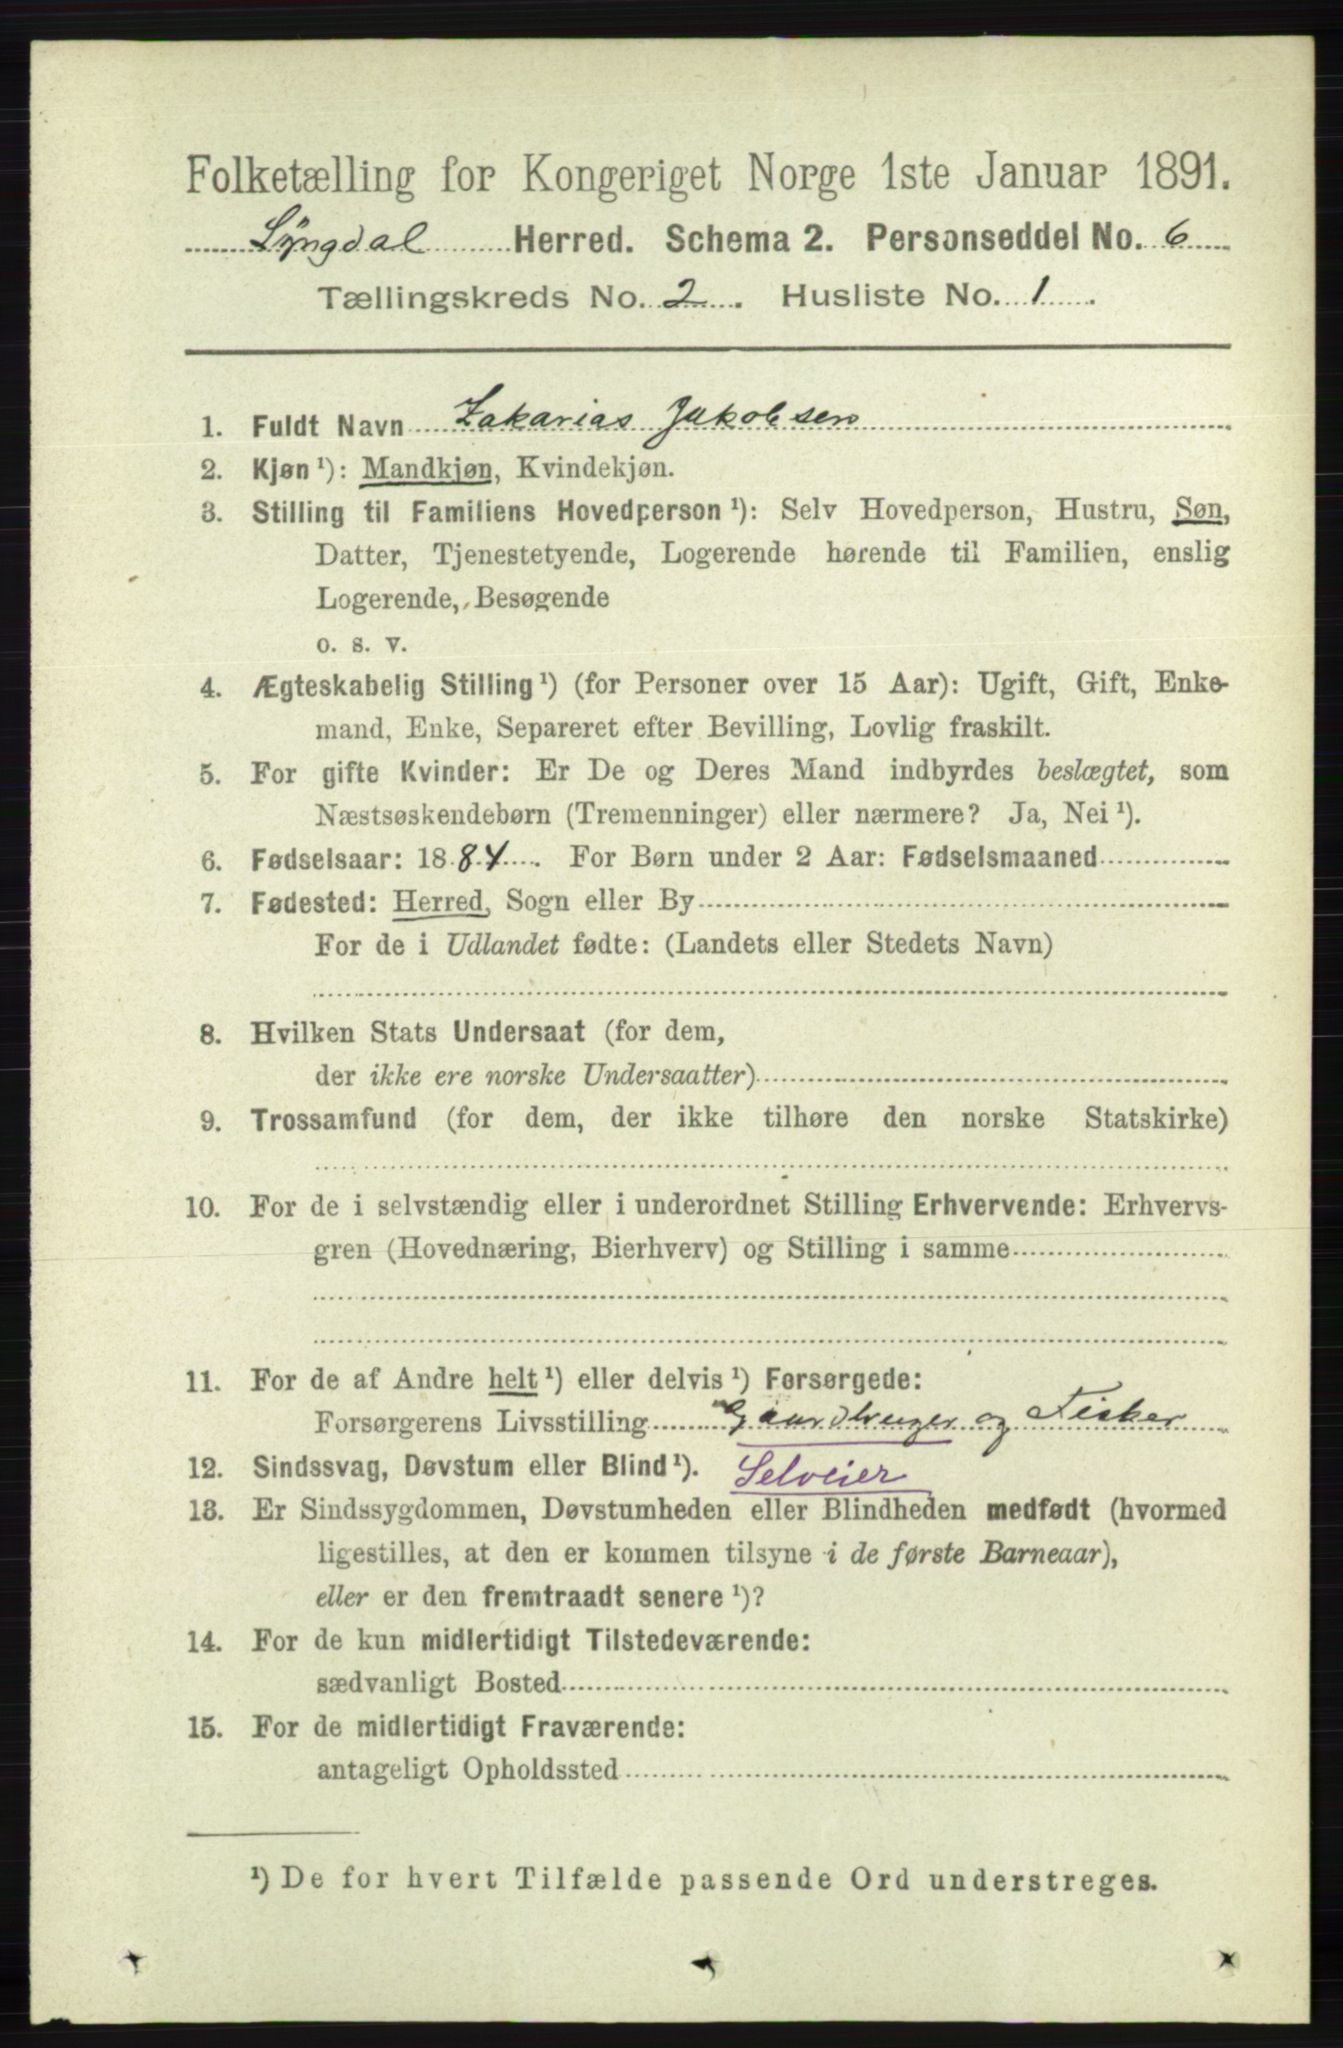 Folketælling for Kongeriget Norge 1ste Januar 1891.
Lyngdal Herred. Schema 2. Personseddel No. 6
Tællingskreds No. 2. Husliste No. 1.
1. Fuldt Navn Zakarias Jakobsen
2. Kjøn ¹): Mandkjøn, Kvindekjøn.
3. Stilling til Familiens Hovedperson ¹): Selv Hovedperson, Hustru, Søn,
Datter, Tjenestetyende, Logerende hørende til Familien, enslig
Logerende, Besøgende
o. s. v.
4. Ægteskabelig Stilling ¹) (for Personer over 15 Aar): Ugift, Gift, Enke-
mand, Enke, Separeret efter Bevilling, Lovlig fraskilt.
5. For gifte Kvinder: Er De og Deres Mand indbyrdes beslægtet, som
Næstsøskendebørn (Tremenninger) eller nærmere? Ja, Nei ¹).
6. Fødselsaar: 1884. For Børn under 2 Aar: Fødselsmaaned
7. Fødested: Herred, Sogn eller By
For de i Udlandet fødte: (Landets eller Stedets Navn)
8. Hvilken Stats Undersaat (for dem,
der ikke ere norske Undersaatter)
9. Trossamfund (for dem, der ikke tilhøre den norske Statskirke)
10. For de i selvstændig eller i underordnet Stilling Erhvervende: Erhvervs-
gren (Hovednæring, Bierhverv) og Stilling i samme
11. For de af Andre helt ¹) eller delvis ¹) Forsørgede:
Forsørgerens Livsstilling Gaardbruger og Fisker
12. Sindssvag, Døvstum eller Blind ¹). Selveier
13. Er Sindssygdommen, Døvstumheden eller Blindheden medfødt (hvormed
ligestilles, at den er kommen tilsyne i de første Barneaar),
eller er den fremtraadt senere ¹)?
14. For de kun midlertidigt Tilstedeværende:
sædvanligt Bosted
15. For de midlertidigt Fraværende:
antageligt Opholdssted
¹) De for hvert Tilfælde passende Ord understreges.